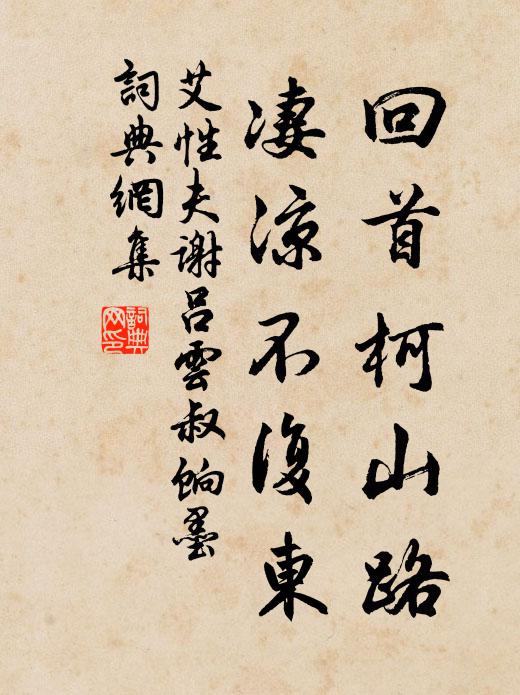 回首柯山路
淒凉不復東
艾性夫謝呂雲叔餉墨
詞典網集
詞典网印